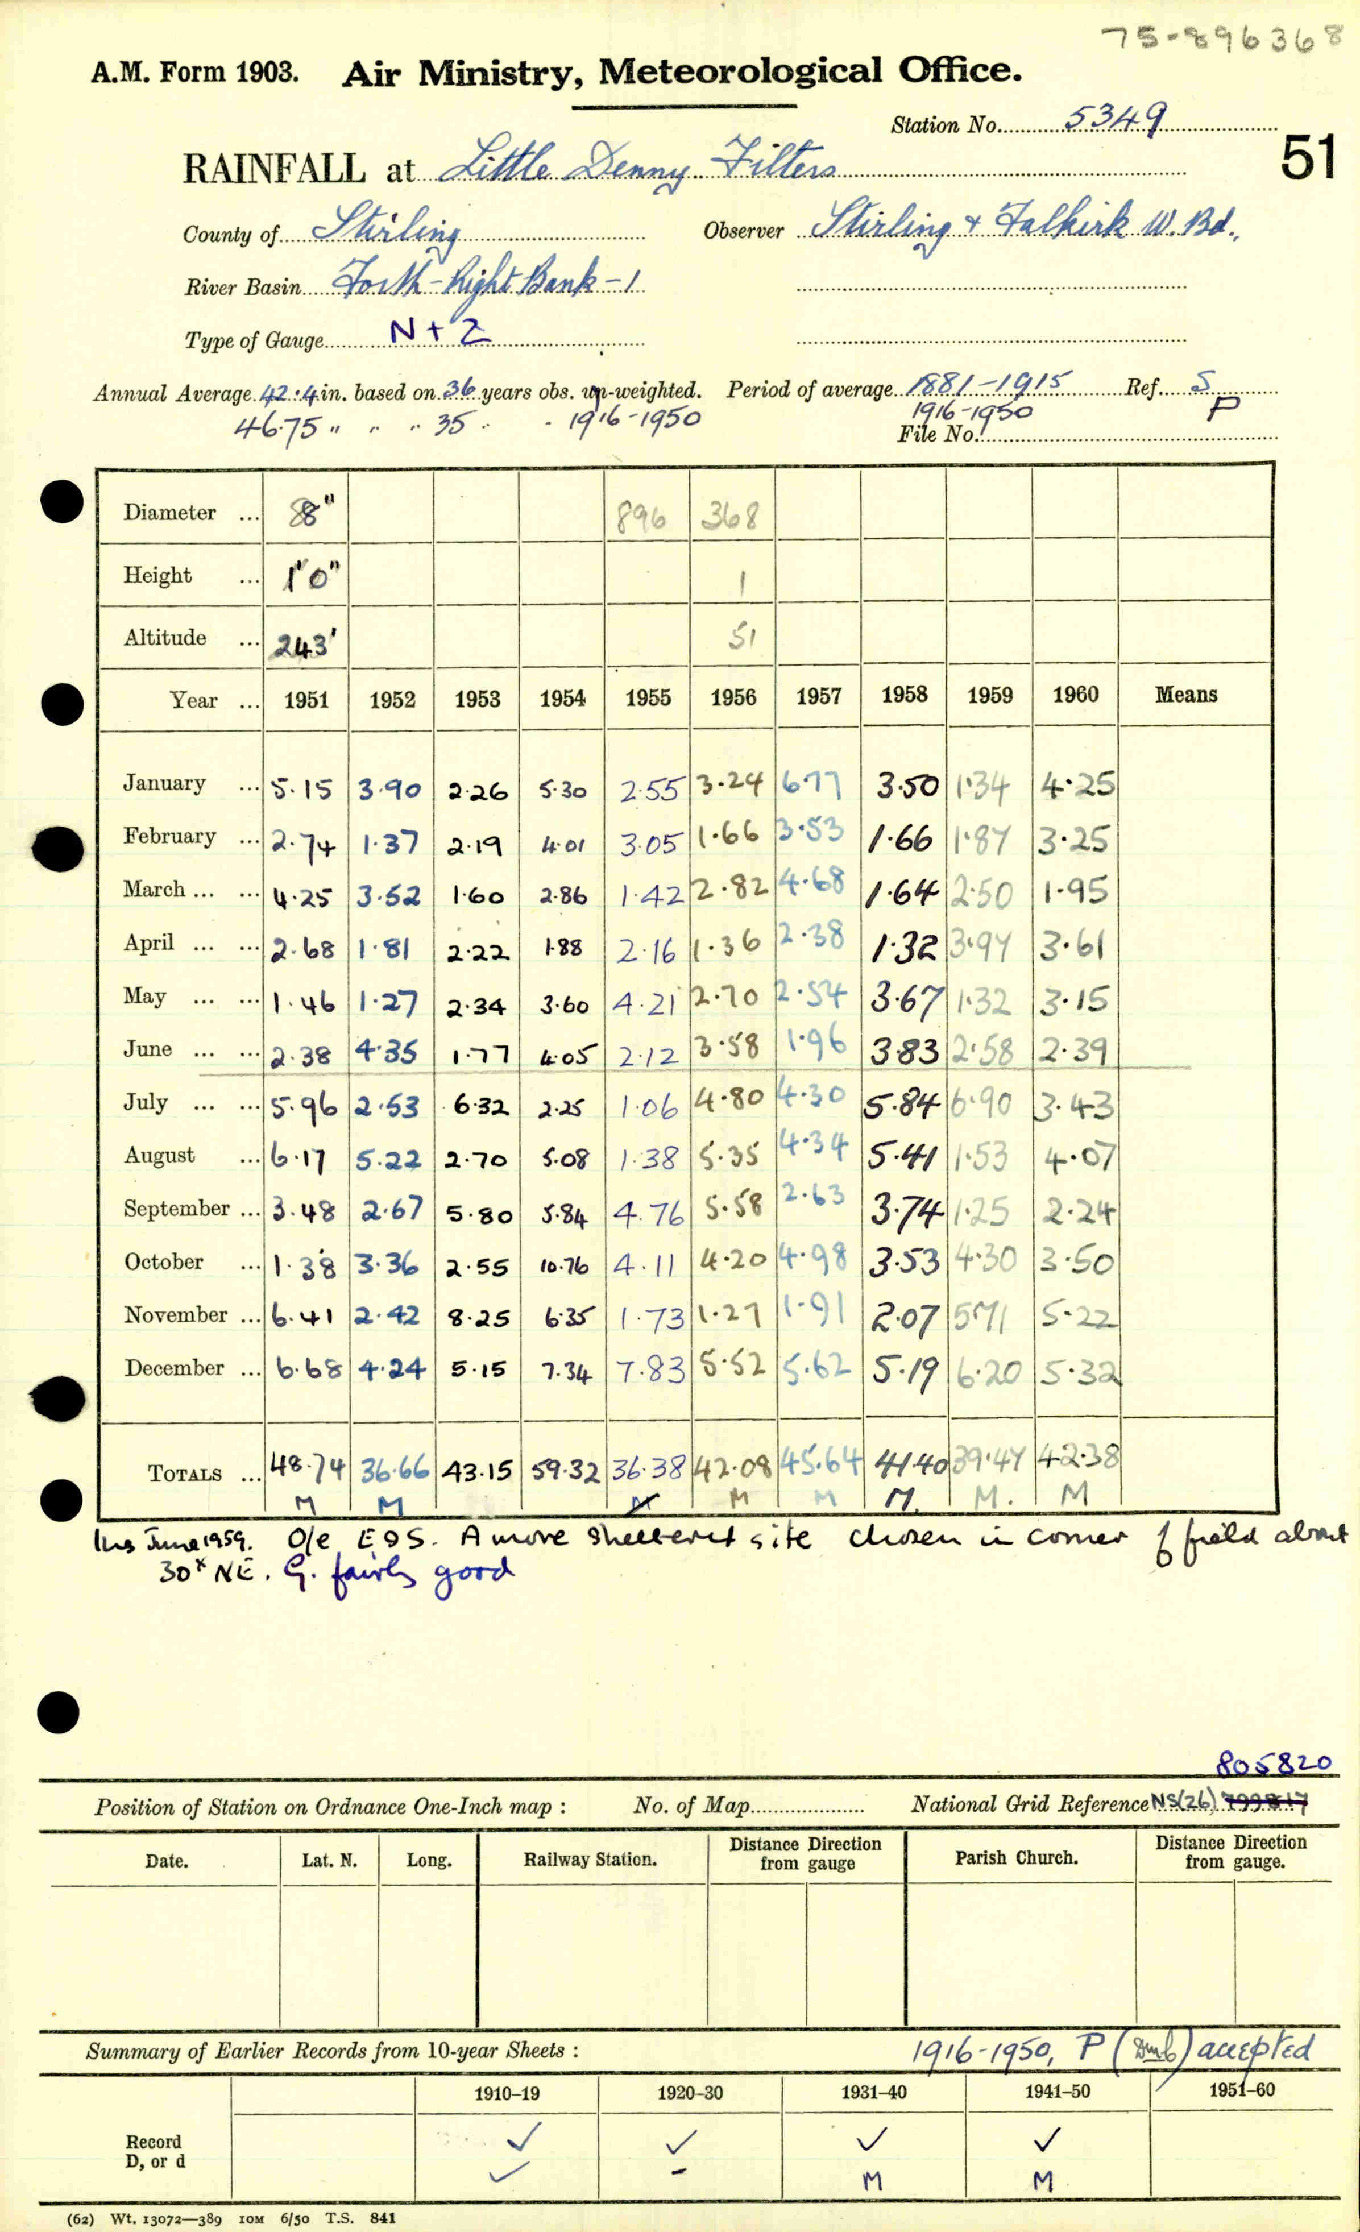 75-896368
A.M. Form 1903. Air Ministry, Meteorological Office.
Station No. 5349
51
RAINFALL at Little Denny Filters
County of Stirling Observer Stirling & Falkirk W. Bd.,
River Basin Forth-Right Bank-1
Type of Gauge N + Z
Annual Average 42.4 in. based on 36 years obs. un-weighted. Period of average 1881-1915 Ref. S
46.75 " " " 35 " " 1916-1950 1916-1950 P
File No.
Diameter ... 8" 896 368
Height ... 1'0" 1
Altitude ... 243' 51
Year ... 1951 1952 1953 1954 1955 1956 1957 1958 1959 1960 Means
January ... 5.15 3.90 2.26 5.30 2.55 3.24 6.77 3.50 1.34 4.25
February ... 2.74 1.37 2.19 4.01 3.05 1.66 3.53 1.66 1.87 3.25
March ... ... 4.25 3.52 1.60 2.86 1.42 2.82 4.68 1.64 2.50 1.95
April ... ... 2.68 1.81 2.22 1.88 2.16 1.36 2.38 1.32 3.97 3.61
May ... ... 1.46 1.27 2.34 3.60 4.21 2.70 2.54 3.67 1.32 3.15
June ... ... 2.38 4.35 1.77 4.05 2.12 3.58 1.96 3.83 2.58 2.39
July ... ... 5.96 2.53 6.32 2.25 1.06 4.80 4.30 5.84 6.90 3.43
August ... 6.17 5.22 2.70 5.08 1.38 5.35 4.34 5.41 1.53 4.07
September ... 3.48 2.67 5.80 5.84 4.76 5.58 2.63 3.74 1.25 2.24
October ... 1.38 3.36 2.55 10.76 4.11 4.20 4.98 3.53 4.30 3.50
November ... 6.41 2.42 8.25 6.35 1.73 1.27 1.91 2.07 5.71 5.22
December ... 6.68 4.24 5.15 7.34 7.83 5.52 5.62 5.19 6.20 5.32
TOTALS ... 48.74 36.66 43.15 59.32 36.38 42.08 45.64 41.40 39.47 42.38
M M M M M M. M. M
Ins June 1959. O/e E & S. A more sheltered site chosen in corner of field about
30x NE. G. fairly good
805820
Position of Station on Ordnance One-Inch map : No. of Map National Grid Reference NS(26) 799817
Date. Lat. N. Long. Railway Station. Distance Direction from gauge Parish Church. Distance Direction from gauge.
Summary of Earlier Records from 10-year Sheets : 1916-1950, P ( ) accepted
1910–19 1920–30 1931–40 1941–50 1951–60
Record ✓ ✓ ✓ ✓
D, or d ✓ - M M
(62) Wt. 13072—389 10M 6/50 T.S. 841